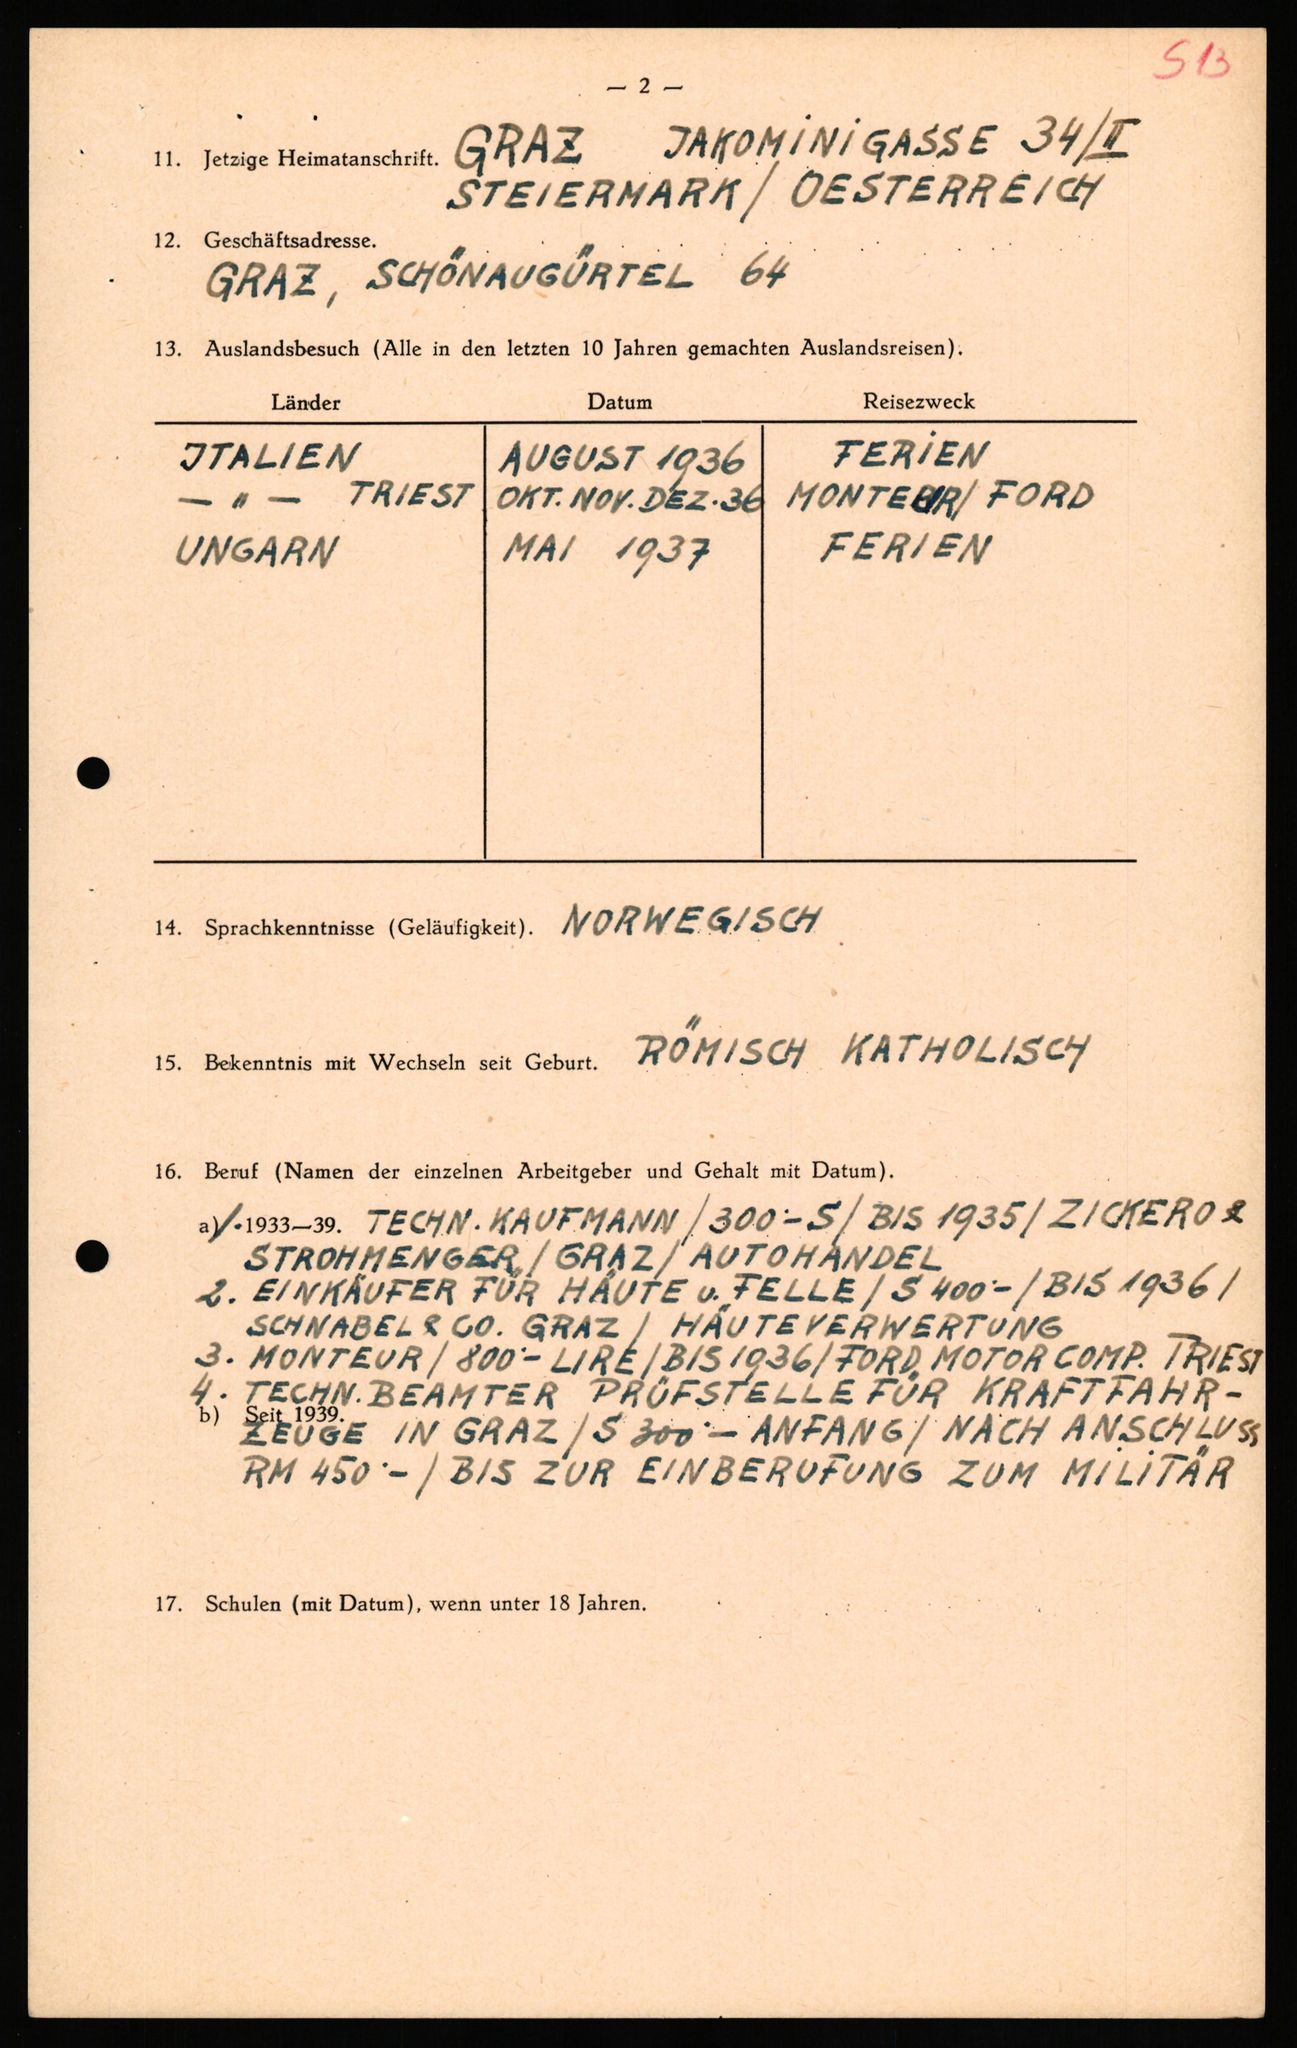 S 13
— 2 —
11. Jetzige Heimatanschrift. GRAZ JAKOMINIGASSE 34/II
STEIERMARK / OESTERREICH
12. Geschäftsadresse.
GRAZ, SCHÖNAUGÜRTEL 64
13. Auslandsbesuch (Alle in den letzten 10 Jahren gemachten Auslandsreisen).
Länder Datum Reisezweck
ITALIEN AUGUST 1936 FERIEN
— " — TRIEST OKT. NOV. DEZ. 36 MONTEUR / FORD
UNGARN MAI 1937 FERIEN
14. Sprachkenntnisse (Geläufigkeit). NORWEGISCH
15. Bekenntnis mit Wechseln seit Geburt. RÖMISCH KATHOLISCH
16. Beruf (Namen der einzelnen Arbeitgeber und Gehalt mit Datum).
a) 1. 1933—39. TECHN. KAUFMANN / 300·- S / BIS 1935 / ZICKERO &
STROHMENGER / GRAZ / AUTOHANDEL
2. EINKÄUFER FÜR HÄUTE u. FELLE / S 400·- / BIS 1936 /
SCHNABEL & CO. GRAZ / HÄUTEVERWERTUNG
3. MONTEUR / 800·- LIRE / BIS 1936 / FORD MOTOR COMP. TRIEST
4. TECHN. BEAMTER PRÜFSTELLE FÜR KRAFTFAHR-
b) Seit 1939.
ZEUGE IN GRAZ / S 300·- ANFANG / NACH ANSCHLUSS
RM 450·- / BIS ZUR EINBERUFUNG ZUM MILITÄR
17. Schulen (mit Datum), wenn unter 18 Jahren.